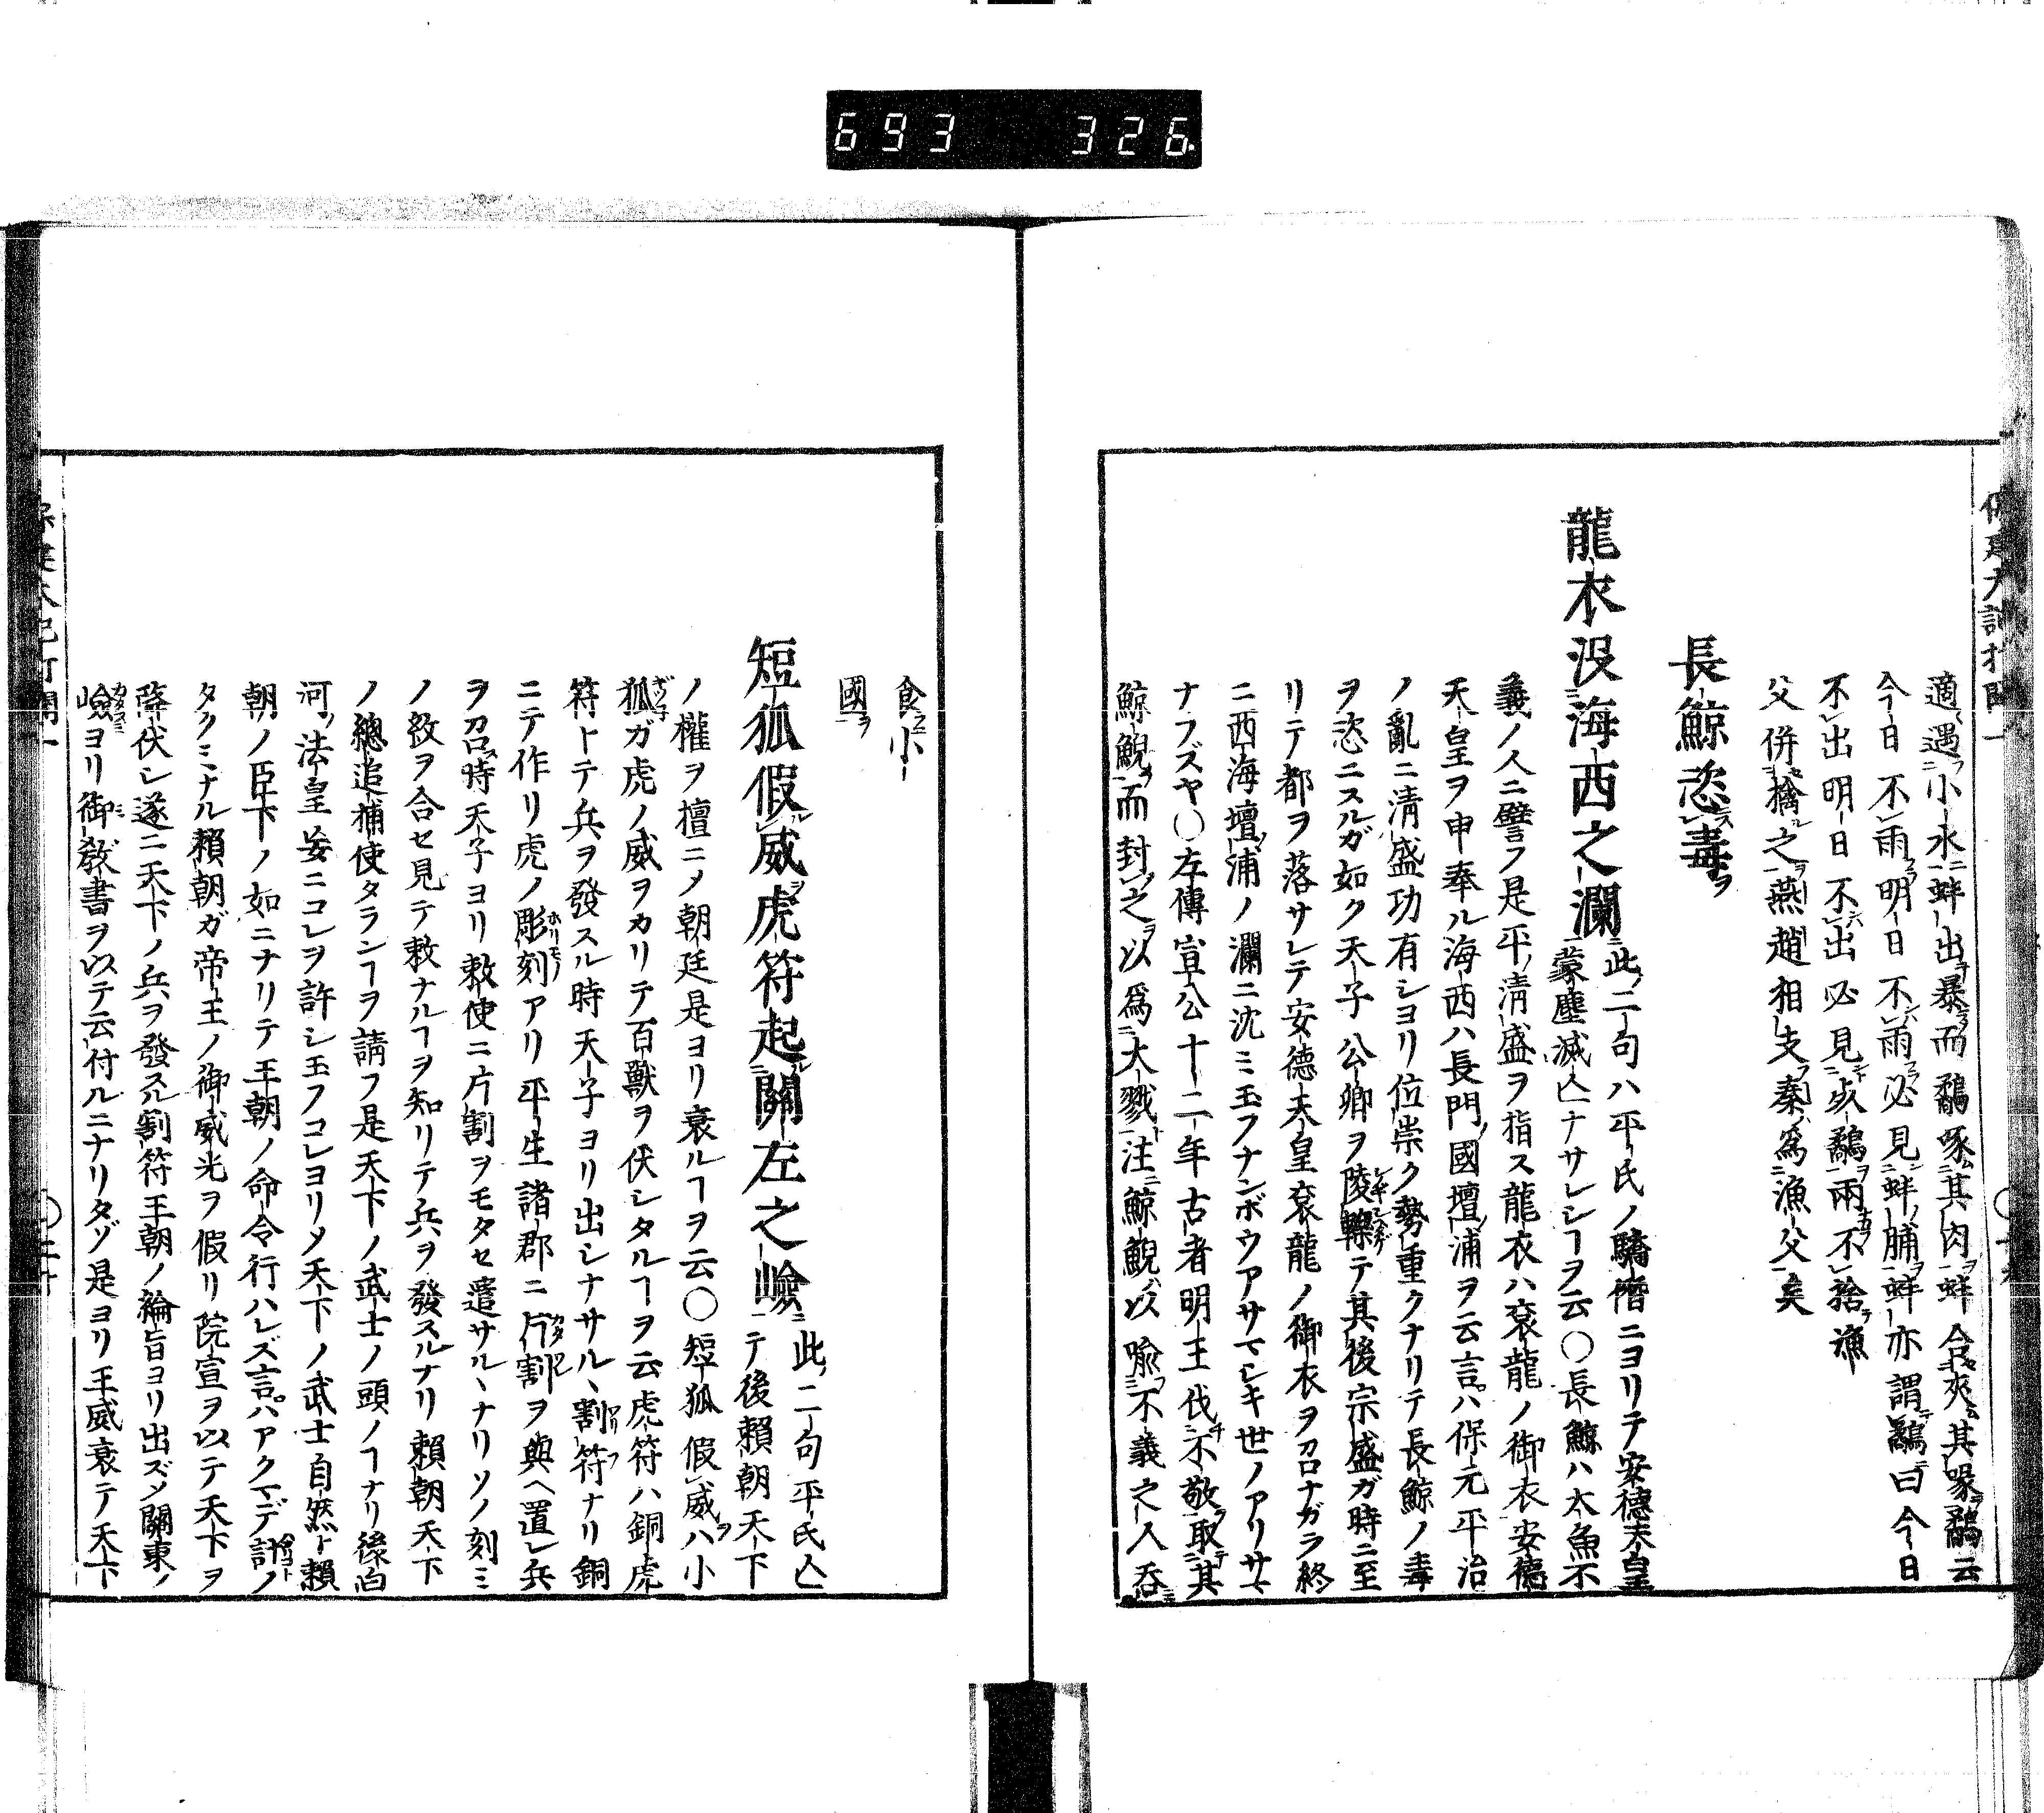 693 326
適遇小水蚌出暴而鷸啄其肉蚌合夾其喙鷸云
今日不雨明日不雨必見蚌脯蚌亦謂鷸曰今日
不出明日不出必見死鷸兩不捨漁
父併擒之燕趙相支秦爲漁父矣
長鯨恣毒
龍衣沒海西之瀾此二句ハ平氏ノ驕僭ニヨリテ安德天皇
蒙塵滅亡ナサレシヿヲ云〇長鯨ハ大魚不
義ノ人ニ譬フ是平ノ淸盛ヲ指ス龍衣ハ袞龍ノ御衣安德
天皇ヲ申奉ル海西ハ長門國壇浦ヲ云言ハ保元平治
ノ亂ニ淸盛功有シヨリ位崇ク勢重クナリテ長鯨ノ毒
ヲ恣ニスルガ如ク天子公卿ヲ陵轢テ其後宗盛ガ時ニ至
リテ都ヲ落サレテ安德天皇袞龍ノ御衣ヲ召ナガラ終
ニ西海壇浦ノ瀾ニ沈ミ玉フナンボウアサマシキ世ノアリサマ
ナラズヤ〇左傳宣公十二年古者明王伐不敬取其
鯨鯢而封之以爲大戮注鯨鯢以喩不義之人呑
食小
國ヲ
短狐假威虎符起關左之嶮此二句平氏亡
テ後賴朝天下
ノ權ヲ擅ニメ朝廷是ヨリ衰ルヿヲ云〇短狐假威ハ小
狐ガ虎ノ威ヲカリテ百獸ヲ伏シタルヿヲ云虎符ハ銅虎
符トテ兵ヲ發スル時天子ヨリ出シナサルヽ割符ナリ銅
ニテ作リ虎ノ彫刻アリ平生諸郡ニ片割ヲ與ヘ置レ兵
ヲ召時天子ヨリ敕使ニ片割ヲモタセ遣サルヽナリソノ刻ミ
ノ紋ヲ合セ見テ敕ナルヿヲ知リテ兵ヲ發スルナリ賴朝天下
ノ總追捕使タランヿヲ請フ是天下ノ武士ノ頭ノヿナリ後白
河ノ法皇妄ニコレヲ許シ玉フコレヨリメ天下ノ武士自然ト賴
朝ノ臣下ノ如ニナリテ王朝ノ命令行ハレズ言ハアクマデ計ノ
タクミナル賴朝ガ帝王ノ御威光ヲ假リ院宣ヲ以テ天下ヲ
降伏シ遂ニ天下ノ兵ヲ發スル割符王朝ノ綸旨ヨリ出ズメ關東ノ
嶮ヨリ御敎書ヲ以テ云付ルニナリタゾ是ヨリ王威衰テ天下